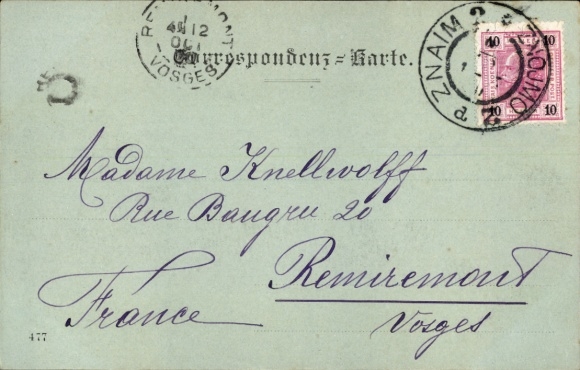 REMIREMONT
12
VOSGES
Correspondenz-Karte.
ZNAIM 2
ZNOJMO
10 10
10 10
Madame Knellwolff
Rue Baugru 20
Remiremont
France
Vosges
477